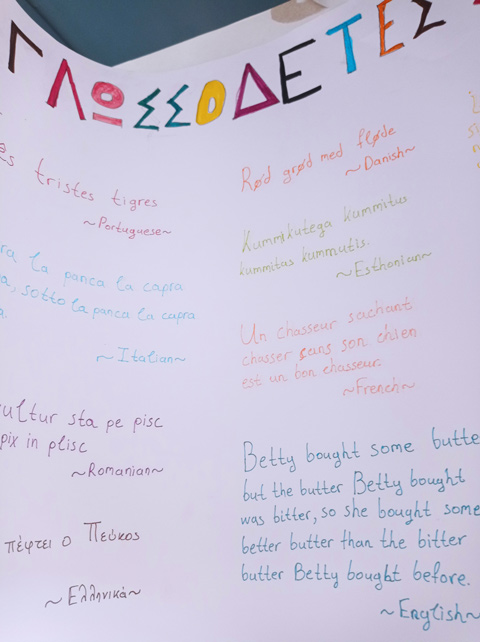 ΓΛΩΣΣΟΔΕΤΕΣ
es tristes tigres
~Portuguese~
ra la panca la capra
a, sotto la panca la capra
a.
~Italian~
ultur sta pe pisc
pix in plisc
~Romanian~
πέφτει ο Πεύκος
~Ελληνικά~
Rød grød med fløde
~Danish~
Kummikutega kummitus
kummitas kummutis.
~Esthonian~
Un chasseur sachant
chasser çans son chien
est un bon chasseur.
~French~
Betty bought some butte
but the butter Betty bought
was bitter, so she bought some
better butter than the bitter
butter Betty bought before.
~English~